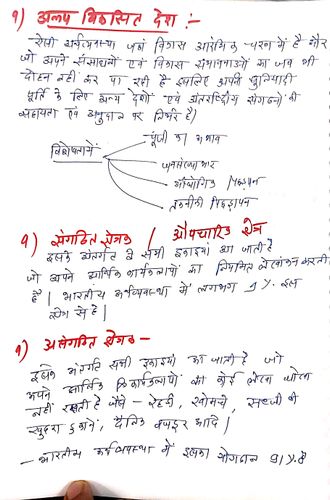 १) अल्प विकसित देश :-
- ऐसी अर्थव्यवस्था जहां विकास आरंभिक चरण में है और
जो अपने संसाधनों एवं विकास संभावनाओं का जब भी
दोहन नहीं कर पा रही है इसलिए अपनी बुनियादी
पूर्ति के लिए अन्य देशों एवं अंतरराष्ट्रीय संगठनों की
सहायता एवं अनुदान पर निर्भर है।
विशेषतायें
पूँजी का अभाव
जनसंख्या भार
औद्योगिक पिछड़ापन
तकनीकी पिछड़ापन
१) संगठित क्षेत्रक / औपचारिक क्षेत्र
इसके अंतर्गत वे सभी इकाइयां आ जाती है
जो अपने आर्थिक कार्यकलापों का नियमित लेखांकन करती
है। भारतीय अर्थव्यवस्था में लगभग 9% इस
क्षेत्र से है।
१) असंगठित क्षेत्रक -
इसके अंतर्गत सभी इकाइयां आ जाती है जो
अपने आर्थिक कार्यकलापों का कोई लेखा जोखा
नहीं रखती है जैसे - रेहडी, खोमचे, सब्जी की
खुदरा दुकानें, दैनिक मजदूर आदि।
- भारतीय अर्थव्यवस्था में इसका योगदान 91% है